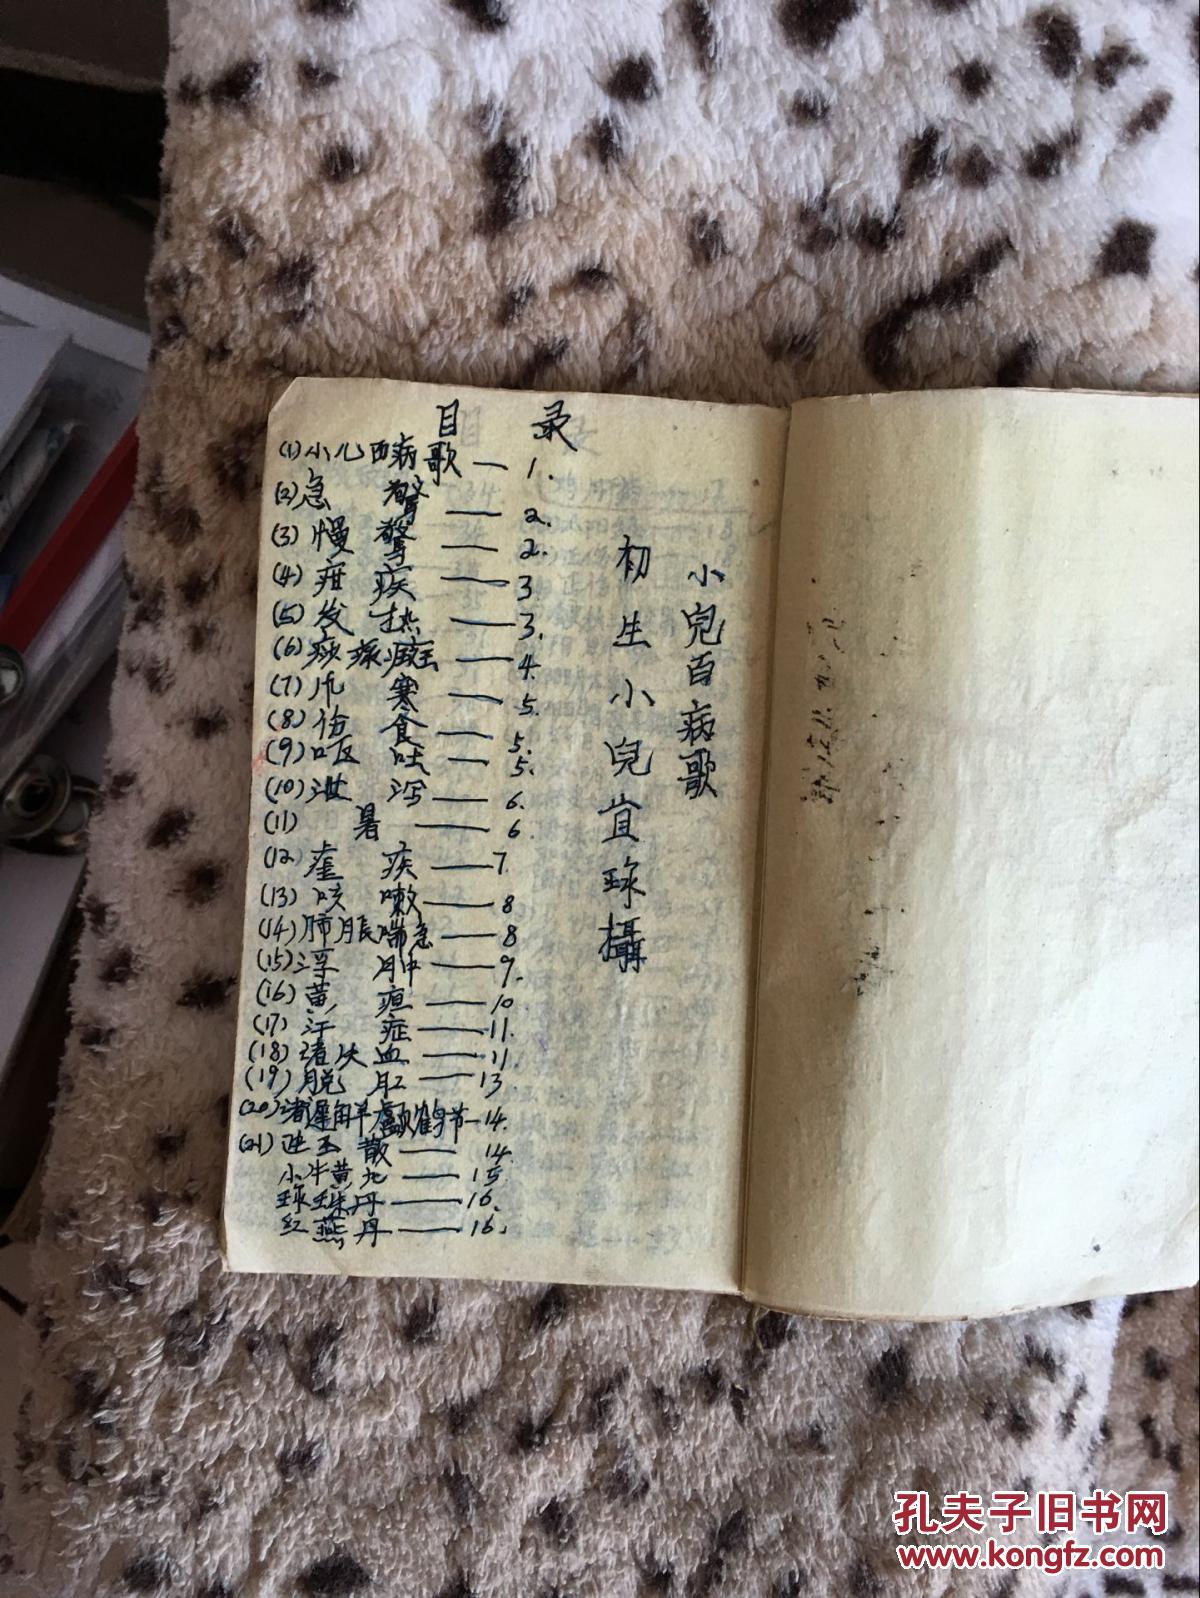 目 录
(1) 小儿百病歌 — 1.
(2) 急 驚 — 2.
(3) 慢 驚 — 2.
(4) 疳 疾 — 3
(5) 发 热 — 3.
(6) 痧 瘰 癍 — 4.
(7) 风 寒 — 5.
(8) 伤 食 — 5.
(9) 呕 吐 — 5.
(10) 泄 泻 — 6.
(11) 暑 — 6.
(12) 疾 — 7
(13) 咳 嗽 — 8
(14) 肺胀喘急 — 8
(15) 浮 肿 — 9.
(16) 黄 疸 — 10.
(17) 汗 症 — 11.
(18) 诸失血 — 11.
(19) 脱 肛 — 13
(20) 诸遲解顱鹤节 — 14.
(21) 玉 散 — 14.
小牛黄丸 — 15
珍珠丹 — 16.
红燕丹 — 16.
小兒百病歌
初生小兒宜珍攝
孔夫子旧书网
www.kongfz.com